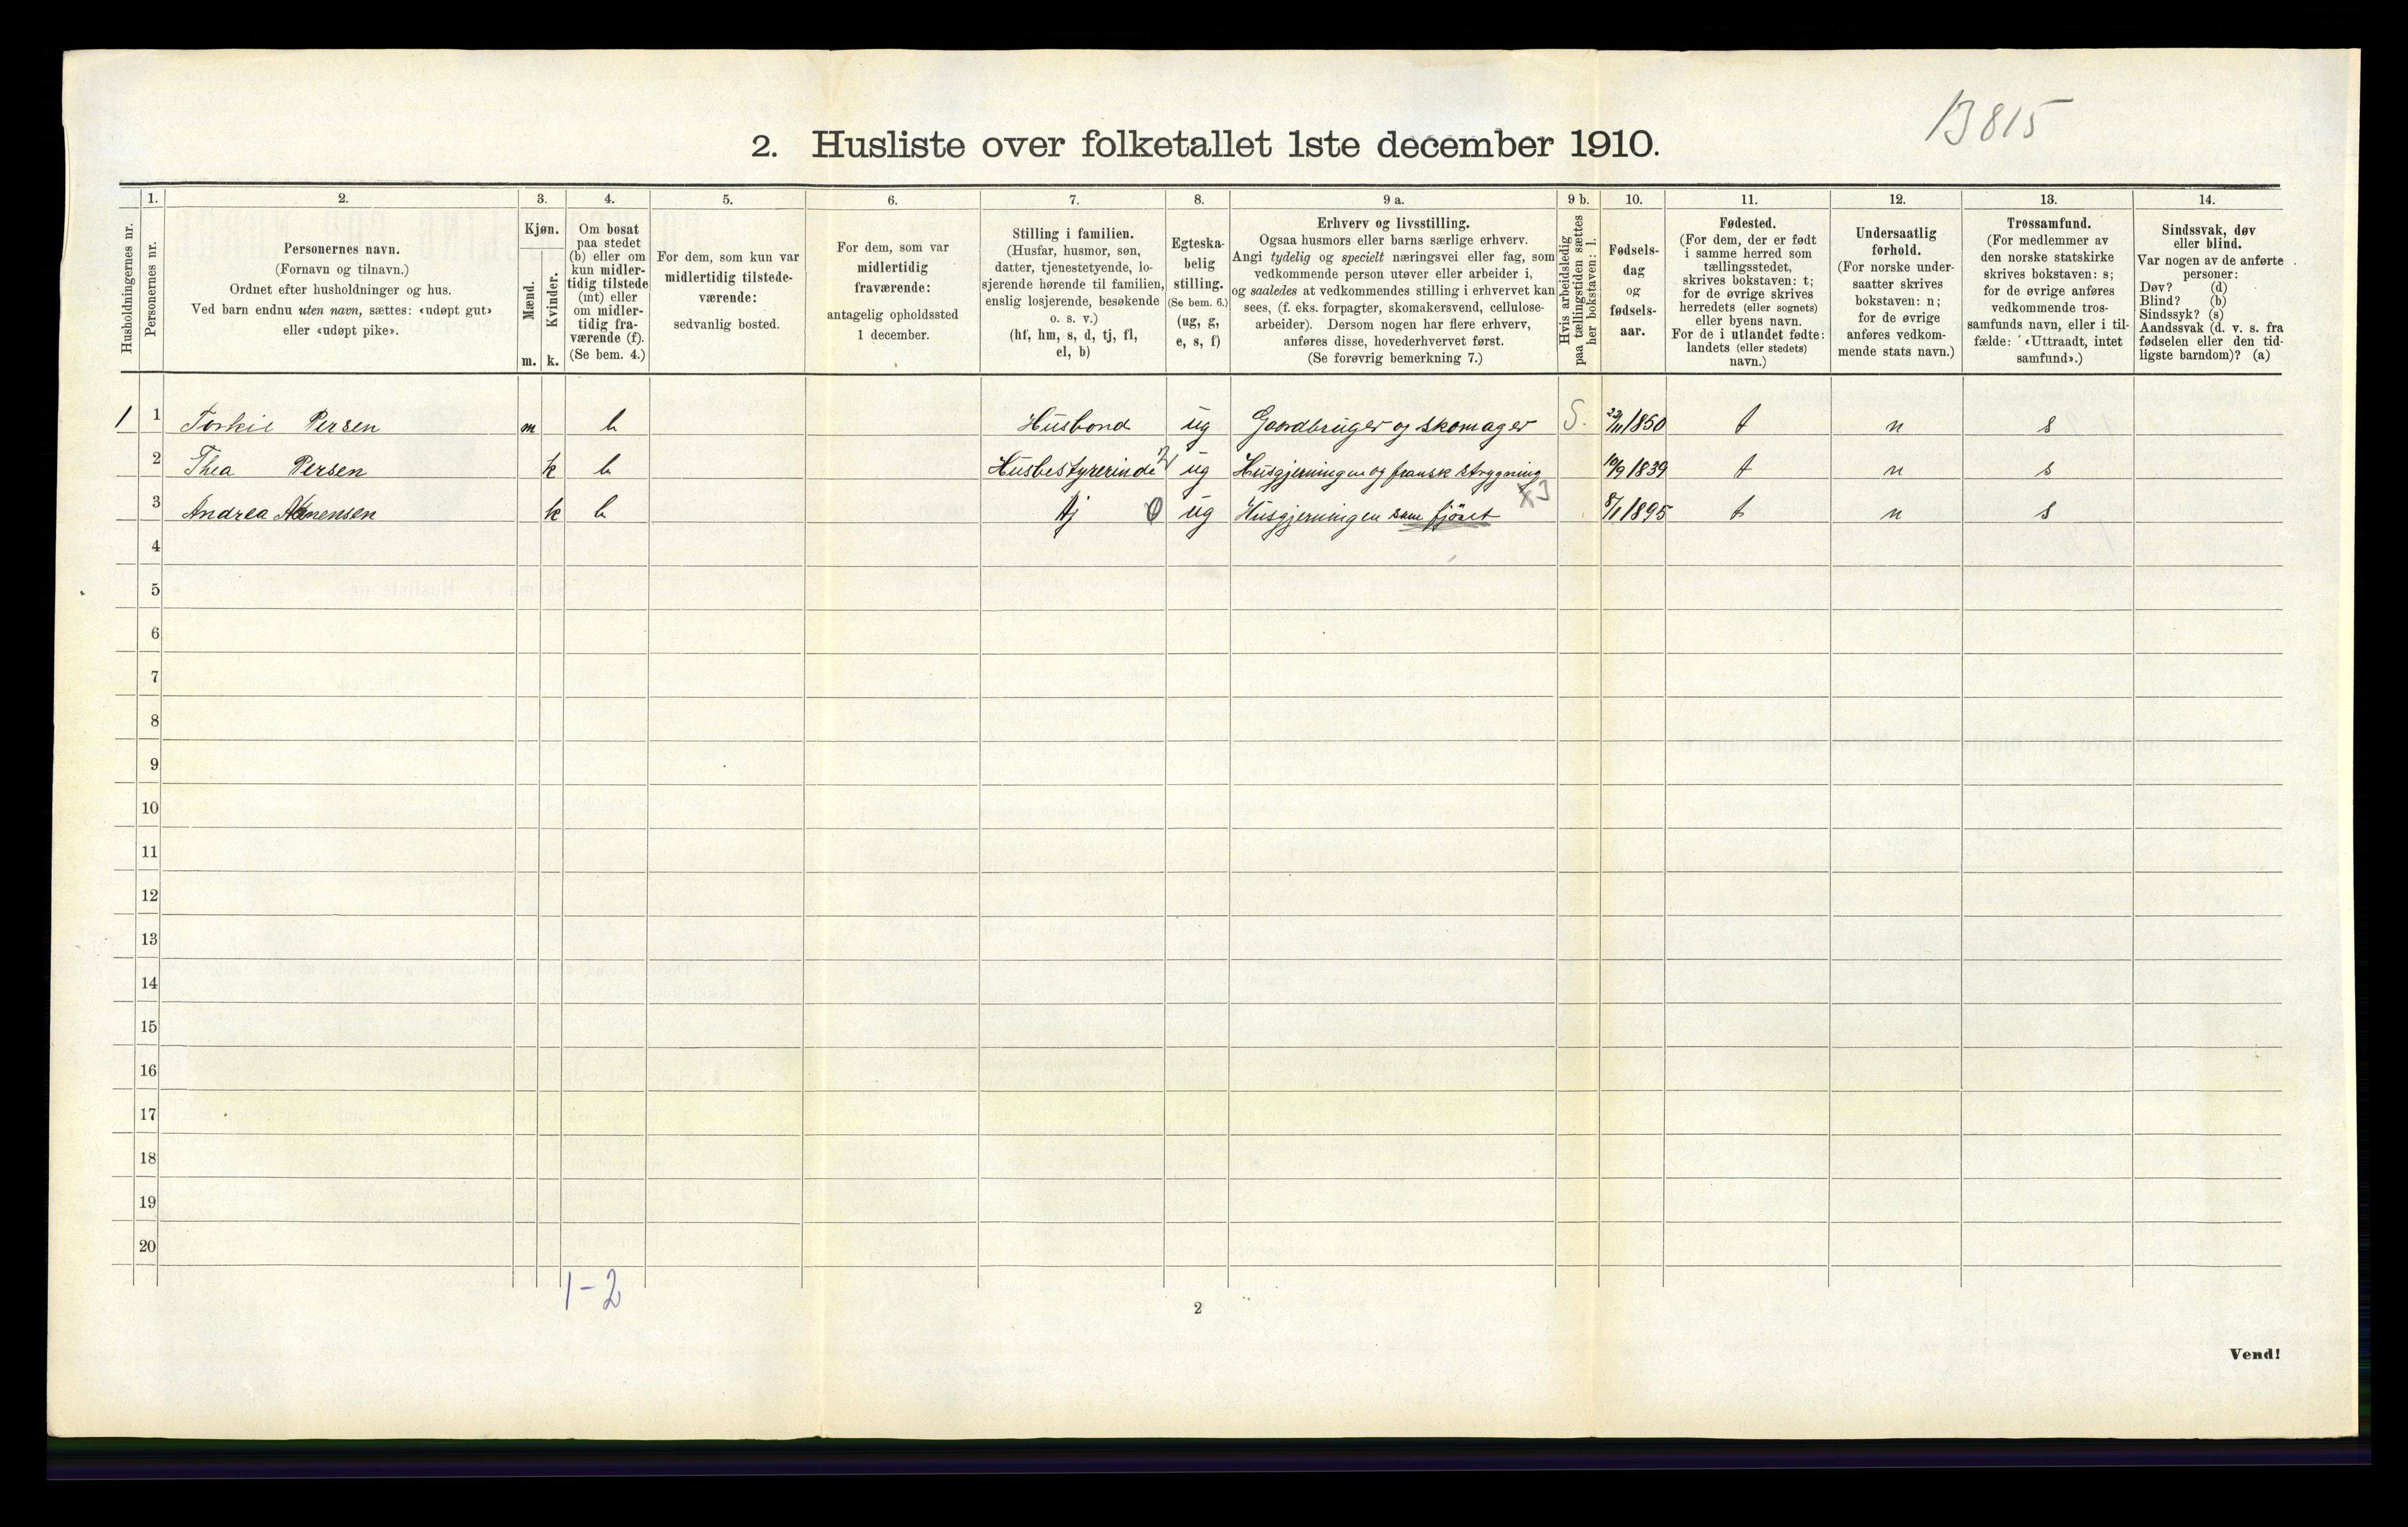 B 815
2. Husliste over folketallet 1ste december 1910.
Husholdningernes nr.
1.
Personernes nr.
2.
Personernes navn.
(Fornavn og tilnavn.)
Ordnet efter husholdninger og hus.
Ved barn endnu uten navn, sættes: «udøpt gut»
eller «udøpt pike».
3.
Kjøn.
Mænd.
Kvinder.
m. k.
4.
Om bosat
paa stedet
(b) eller om
kun midler-
tidig tilstede
(mt) eller
om midler-
tidig fra-
værende (f).
(Se bem. 4.)
5.
For dem, som kun var
midlertidig tilstede-
værende:
sedvanlig bosted.
6.
For dem, som var
midlertidig
fraværende:
antagelig opholdssted
1 december.
7.
Stilling i familien.
(Husfar, husmor, søn,
datter, tjenestetyende, lo-
sjerende hørende til familien,
enslig losjerende, besøkende
o. s. v.)
(hf, hm, s, d, tj, fl,
el, b)
8.
Egteska-
belig
stilling.
(Se bem. 6.)
(ug, g,
e, s, f)
9 a.
Erhverv og livsstilling.
Ogsaa husmors eller barns særlige erhverv.
Angi tydelig og specielt næringsvei eller fag, som
vedkommende person utøver eller arbeider i,
og saaledes at vedkommendes stilling i erhvervet kan
sees, (f. eks. forpagter, skomakersvend, cellulose-
arbeider). Dersom nogen har flere erhverv,
anføres disse, hovederhvervet først.
(Se forøvrig bemerkning 7.)
9 b.
Hvis arbeidsledig
paa tællingstiden sættes
her bokstaven: l.
10.
Fødsels-
dag
og
fødsels-
aar.
11.
Fødested.
(For dem, der er født
i samme herred som
tællingsstedet,
skrives bokstaven: t;
for de øvrige skrives
herredets (eller sognets)
eller byens navn.
For de i utlandet fødte:
landets (eller stedets)
navn.)
12.
Undersaatlig
forhold.
(For norske under-
saatter skrives
bokstaven: n;
for de øvrige
anføres vedkom-
mende stats navn.)
13.
Trossamfund.
(For medlemmer av
den norske statskirke
skrives bokstaven: s;
for de øvrige anføres
vedkommende tros-
samfunds navn, eller i til-
fælde: «Uttraadt, intet
samfund».)
14.
Sindssvak, døv
eller blind.
Var nogen av de anførte
personer:
Døv? (d)
Blind? (b)
Sindssyk? (s)
Aandssvak (d. v. s. fra
fødselen eller den tid-
ligste barndom)? (a)
1 1 Torkil Persen m b Husbond ug Gaardbruger og skomager S. 1850 t n s
2 Thea Persen k b Husbestyrerinde 2 ug Husgjerningen og fransk strygning 10/9 1839 t n s
3 Andrea k b tj 0 ug Husgjerningen samt fjöset X J 8/1 1895 t n s
4
5
6
7
8
9
10
11
12
13
14
15
16
17
18
19
20
1-2
2
Vend!